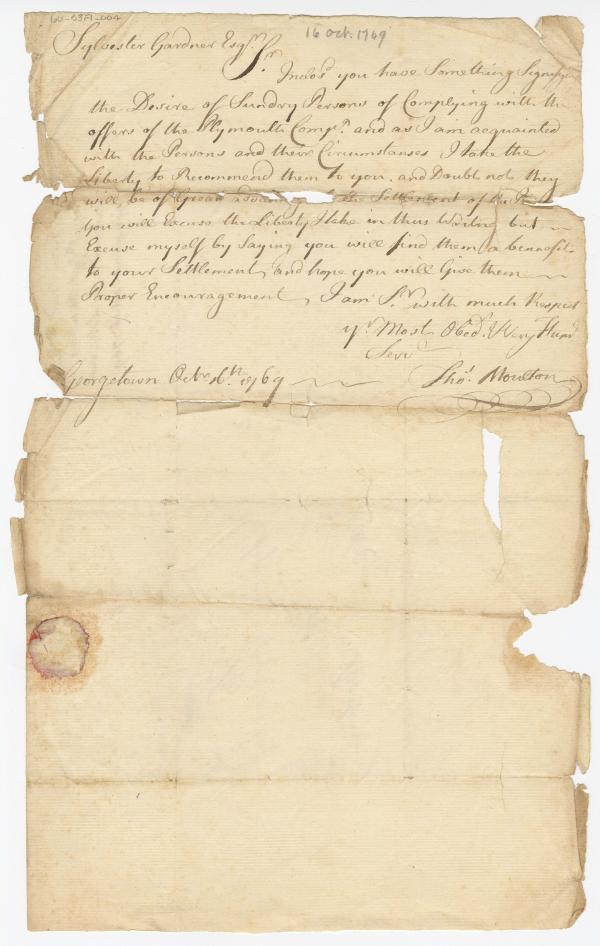 60-53F1-004
16 Oct. 1769
Sylvester Gardner Esqr.
Sr. Inclosd you have Something Signifying
the Desire of Sundry Persons of Complying with the
offers of the Plymouth Compa. and as I am acquainted
with the Persons and their Circumstanses I take the
Liberty to Recommend them to you. and Doubt not they
will be of Great advantage the Settlement of the
you will Excuse the Liberty I take in thus Writing but
Excuse myself by Saying you will find them a bennefit
to your Settlement, and hope you will Give them
Proper Encouragement, I am Sr. with much Respect
yr. Most Obedt. & Very Humb
Servt
Georgetown Octr. 16th. 1769
Thos. Moulton